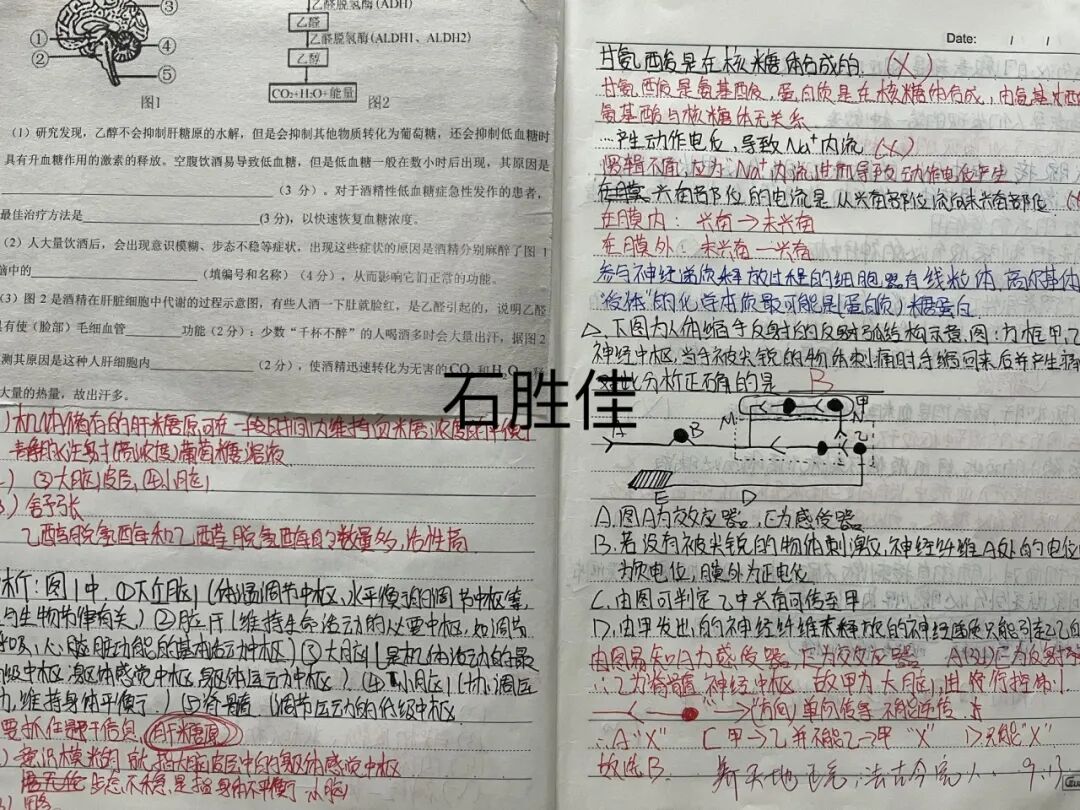 ③
乙醛脱氢酶(ADH)
①
乙醛
②
④
乙醛脱氢酶(ALDH1、ALDH2)
乙醇
⑤
CO₂+H₂O+能量
图1
图2
(1)研究发现，乙醇不会抑制肝糖原的水解，但是会抑制其他物质转化为葡萄糖，还会抑制低血糖时
具有升血糖作用的激素的释放。空腹饮酒易导致低血糖，但是低血糖一般在数小时后出现，其原因是
(3 分)。对于酒精性低血糖症急性发作的患者，
最佳治疗方法是 (3分)，以快速恢复血糖浓度。
(2)人大量饮酒后，会出现意识模糊、步态不稳等症状，出现这些症状的原因是酒精分别麻醉了图 1
脑中的 (填编号和名称)(4分)，从而影响它们正常的功能。
(3)图 2 是酒精在肝脏细胞中代谢的过程示意图，有些人酒一下肚就脸红，是乙醛引起的，说明乙醛
具有使(脸部)毛细血管 功能(2分)；少数“千杯不醉”的人喝酒多时会大量出汗，据图2
测其原因是这种人肝细胞内 (2分)，使酒精迅速转化为无害的CO₂和H₂O，释
大量的热量，故出汗多。
机体储存的肝糖原可在一段时间内维持血糖浓度的平衡
静脉注射(高浓度)葡萄糖溶液
③大脑皮层，④小脑
舒张
乙醇脱氢酶和乙醛脱氢酶的数量多，活性高
析：图1中，①下丘脑(体温调节中枢、水平衡的调节中枢等，
与生物节律有关)②脑干(维持生命活动的必要中枢，如调节
呼吸、心脏功能的基本活动中枢)③大脑(是机体活动的最
高级中枢 躯体感觉中枢，躯体运动中枢)④小脑(协调运
动，维持身体平衡)⑤脊髓(调节运动的低级中枢
要抓住题干信息 肝糖原
意识模糊的 就指大脑皮层中的躯体感觉中枢
步态不稳，是指身体不平衡 小脑
Date: / /
甘氨酸是在核糖体合成的 (X)
甘氨酸是氨基酸，蛋白质是在核糖体合成，由氨基
氨基酸与核糖体无关系
…产生动作电位，导致Na⁺内流 (X)
逻辑不值，应为Na⁺内流进而导致动作电位产生
兴奋部位的电流是从兴奋部位流向未兴奋部位
在膜内：兴奋→未兴奋
在膜外：未兴奋→兴奋
参与神经递质释放过程的细胞器有线粒体，高尔基体
“受体”的化学本质最可能是(蛋白质)糖蛋白
△下图为人体缩手反射的反射弧结构示意图：方框甲、乙
神经中枢，当手被尖锐的物体刺痛时手缩回来后并产生
对此分析正确的是 B
M
N
甲
A
B
乙
E
D
石胜佳
A.图A为效应器，E为感受器
B.若没有被尖锐的物体刺激，神经纤维A处的电位
为负电位，膜外为正电位
C.由图可判定乙中兴奋可传至甲
D.由甲发出的神经纤维末梢释放的神经递质只能引起乙
由图易知A为感受器，E为效应器
∴乙为脊髓 神经中枢 故甲为大脑，
(方向)单向传导 不能逆传
∴A“X” C甲→乙并不能乙→甲 “X” D只能“X”
故选B.